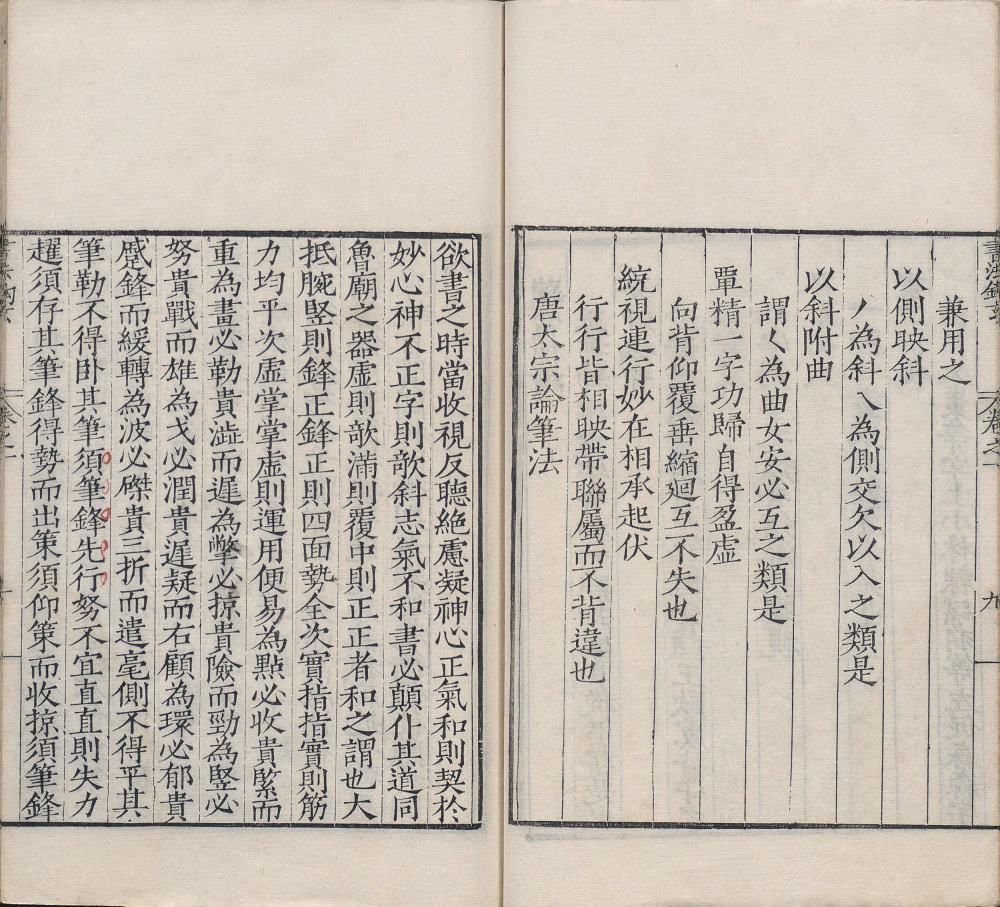 兼用之
以側映斜
丿為斜乀為側交欠以入之類是
以斜附曲
謂く為曲女安必互之類是
覃精一字功歸自得盈虛
向背仰覆垂縮廻互不失也
統視連行妙在相承起伏
行行皆相映帶聯屬而不背違也
唐太宗論筆法
欲書之時當收視反聽絶慮凝神心正氣和則契於
妙心神不正字則欹斜志氣不和書必顛仆其道同
魯廟之器虛則欹滿則覆中則正正者和之謂也大
抵腕竪則鋒正鋒正則四面勢全次實指指實則筋
力均平次虛掌掌虛則運用便易為點必收貴緊而
重為畫必勒貴澁而遲為撆必掠貴險而勁為竪必
努貴戰而雄為戈必潤貴遲疑而右顧為環必郁貴
蹙鋒而緩轉為波必磔貴三折而遣毫側不得平其
筆勒不得卧其筆須筆鋒先行努不宜直直則失力
趯須存其筆鋒得勢而出策須仰策而收掠須筆鋒